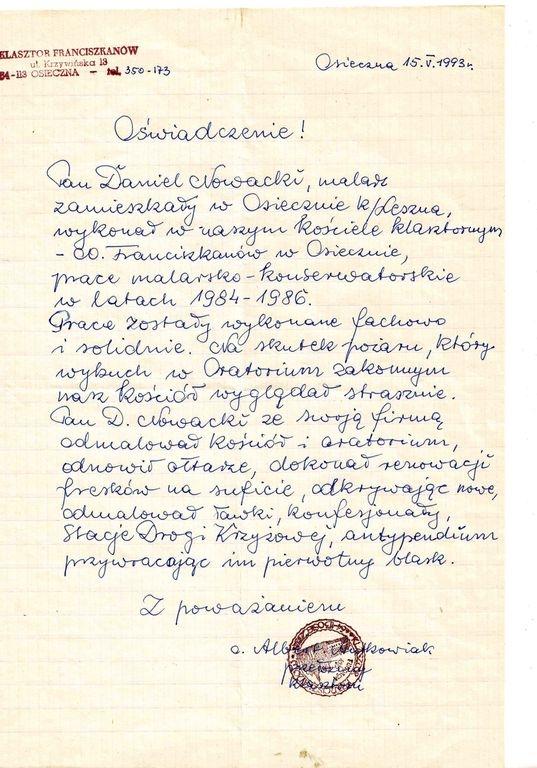 KLASZTOR FRANCISZKANÓW
ul. Krzywińska 13
64-113 OSIECZNA — tel. 350-173
Osieczna 15.V.1993r.
Oświadczenie!
Pan Daniel Nowacki, malarz
zamieszkały w Osiecznie k/Leszna,
wykonał w naszym kościele klasztornym
- OO. Franciszkanów w Osiecznie,
prace malarsko-konserwatorskie
w latach 1984-1986.
Prace zostały wykonane fachowo
i solidnie. Na skutek pożaru, który
wybuch w Oratorium zakonnym
nasz kościół wyglądał strasznie.
Pan D. Nowacki ze swoją firmą
odmalował kościół i oratorium,
odnowił ołtarze, dokonał renowacji
fresków na suficie, odkrywając nowe,
odmalował ławki, konfesjonały,
Stacje Drogi Krzyżowej, antypendium
przywracając im pierwotny blask.
Z poważaniem
o. Albert
przełożony
klasztoru